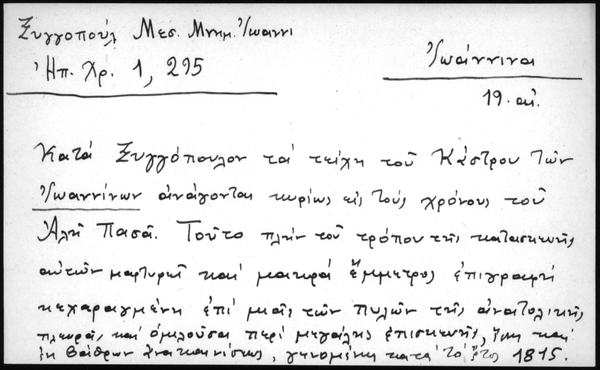 Ξυγγοπούλ Μεσ. Μνημ. Ἰωαννι
Ἠπ. Χρ. 1, 295
Ἰωάννινα
19. αἰ.
Κατά Ξυγγόπουλον τά τείχη τοῦ Κάστρου τῶν
Ἰωαννίνων ἀνάγονται κυρίως εἰς τούς χρόνους τοῦ
Ἀλῆ Πασᾶ. Τοῦτο πλήν τοῦ τρόπου τῆς κατασκευῆς
αὐτῶν μαρτυρεῖ καί μακρά ἔμμετρος ἐπιγραφή
κεχαραγμένη ἐπί μιᾶς τῶν πυλῶν τῆς ἀνατολικῆς
πλευρᾶς καί ὁμιλοῦσα περί μεγάλης ἐπισκευῆς, ἴσως καί
ἐκ βάθρων ἀνακαινίσεως, γενομένης κατά τό ἔτος 1815.